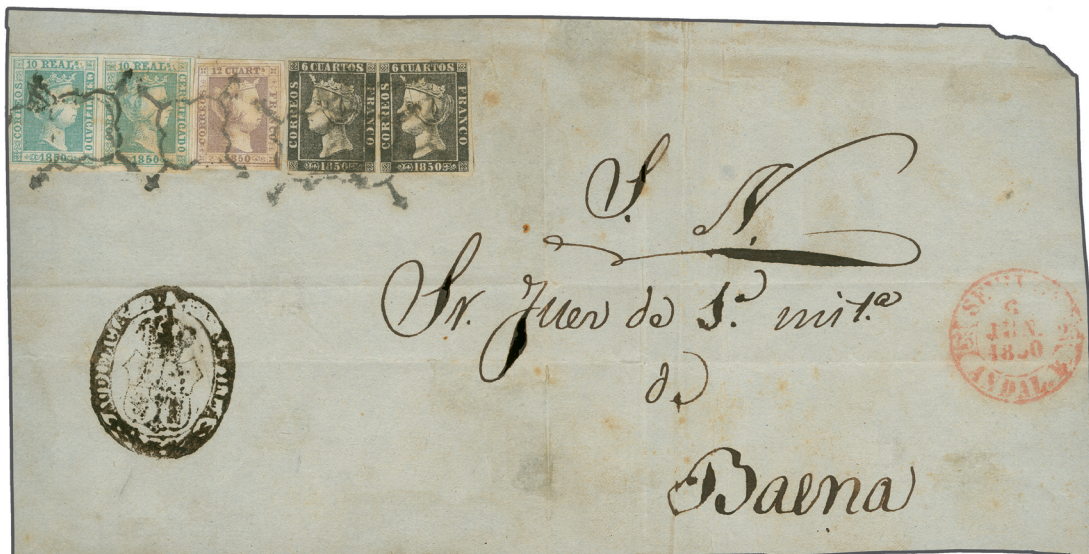 10 REALS
CORREOS
CERTIFICADO
1850
10 REALS
CORREOS
CERTIFICADO
1850
12 CUARTS
CORREOS
FRANCO
1850
6 CUARTOS
CORREOS
FRANCO
1850
6 CUARTOS
CORREOS
FRANCO
1850
S. N.
Sr. Juez de 1ª inst.ª
de
Baena
6
JUN.
1850
ANDAL.